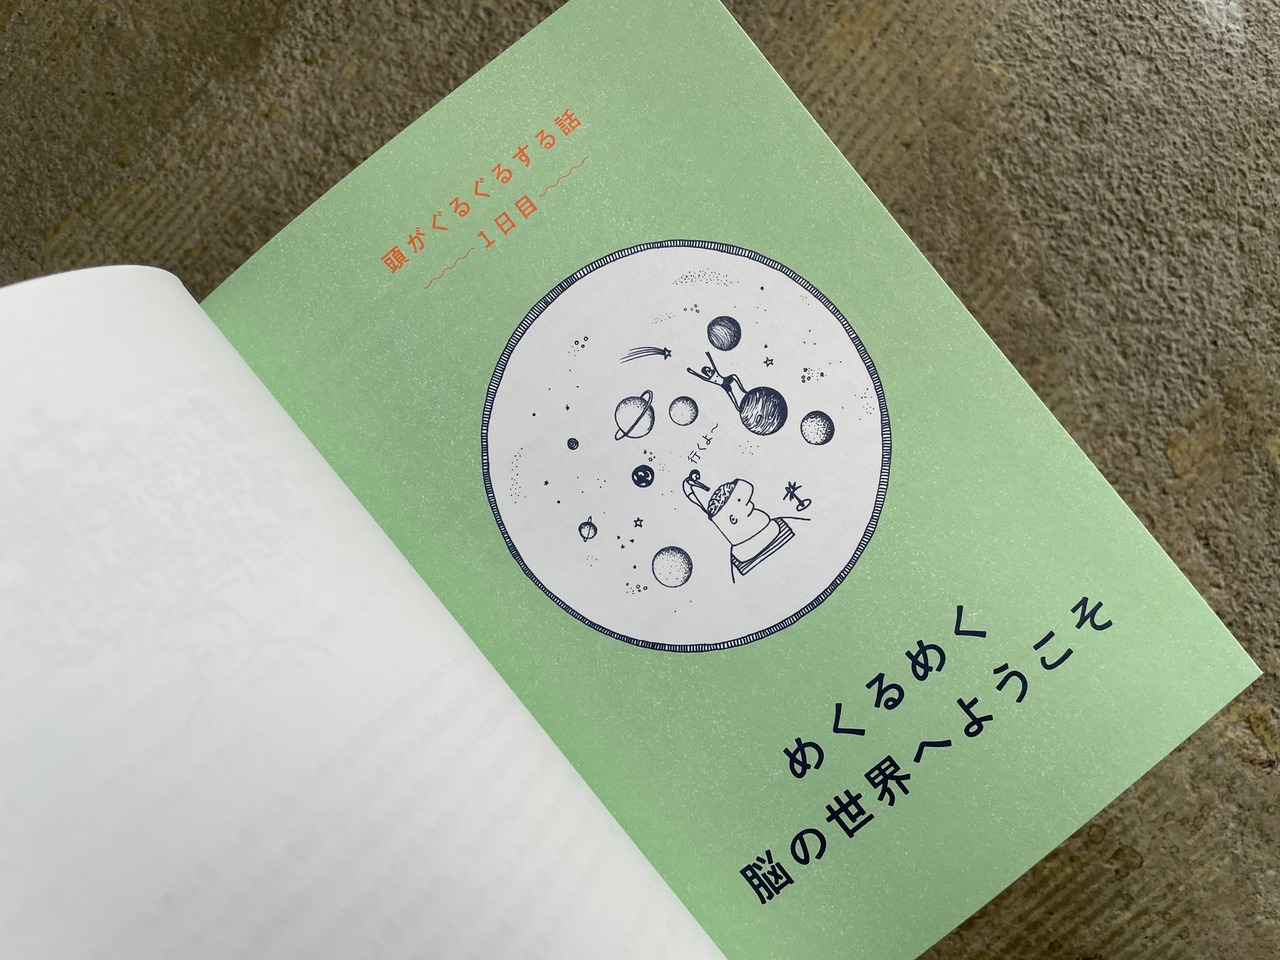 頭がぐるぐるする話
1日目
行くよ〜
めくるめく
脳の世界へようこそ